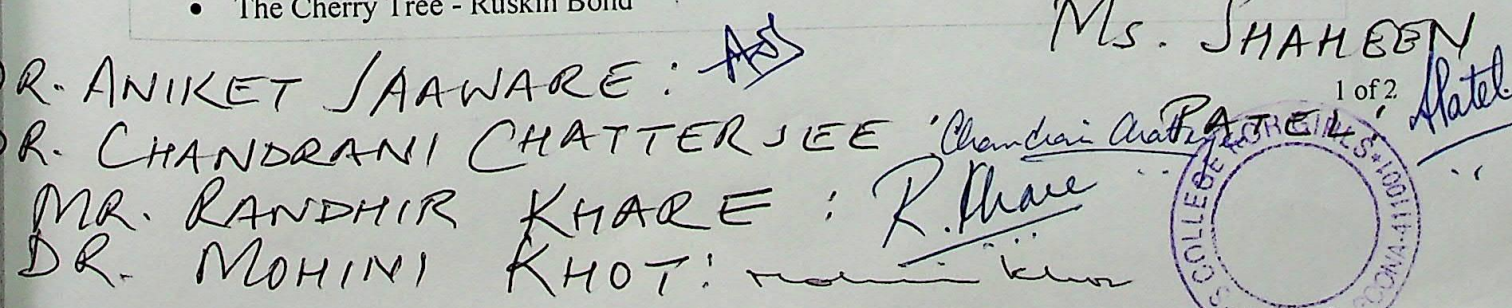 • The Cherry Tree - Ruskin Bond
MS. SHAHEEN
R. ANIKET JAAWARE :
1 of 2
PATEL : SPatel
R. CHANDRANI CHATTERJEE : Chandrani Chatterjee
MR. RANDHIR KHARE : R. Khare
DR. MOHINI KHOT : Mohini Khot
COLLEGE FOR GIRLS * POONA-411001